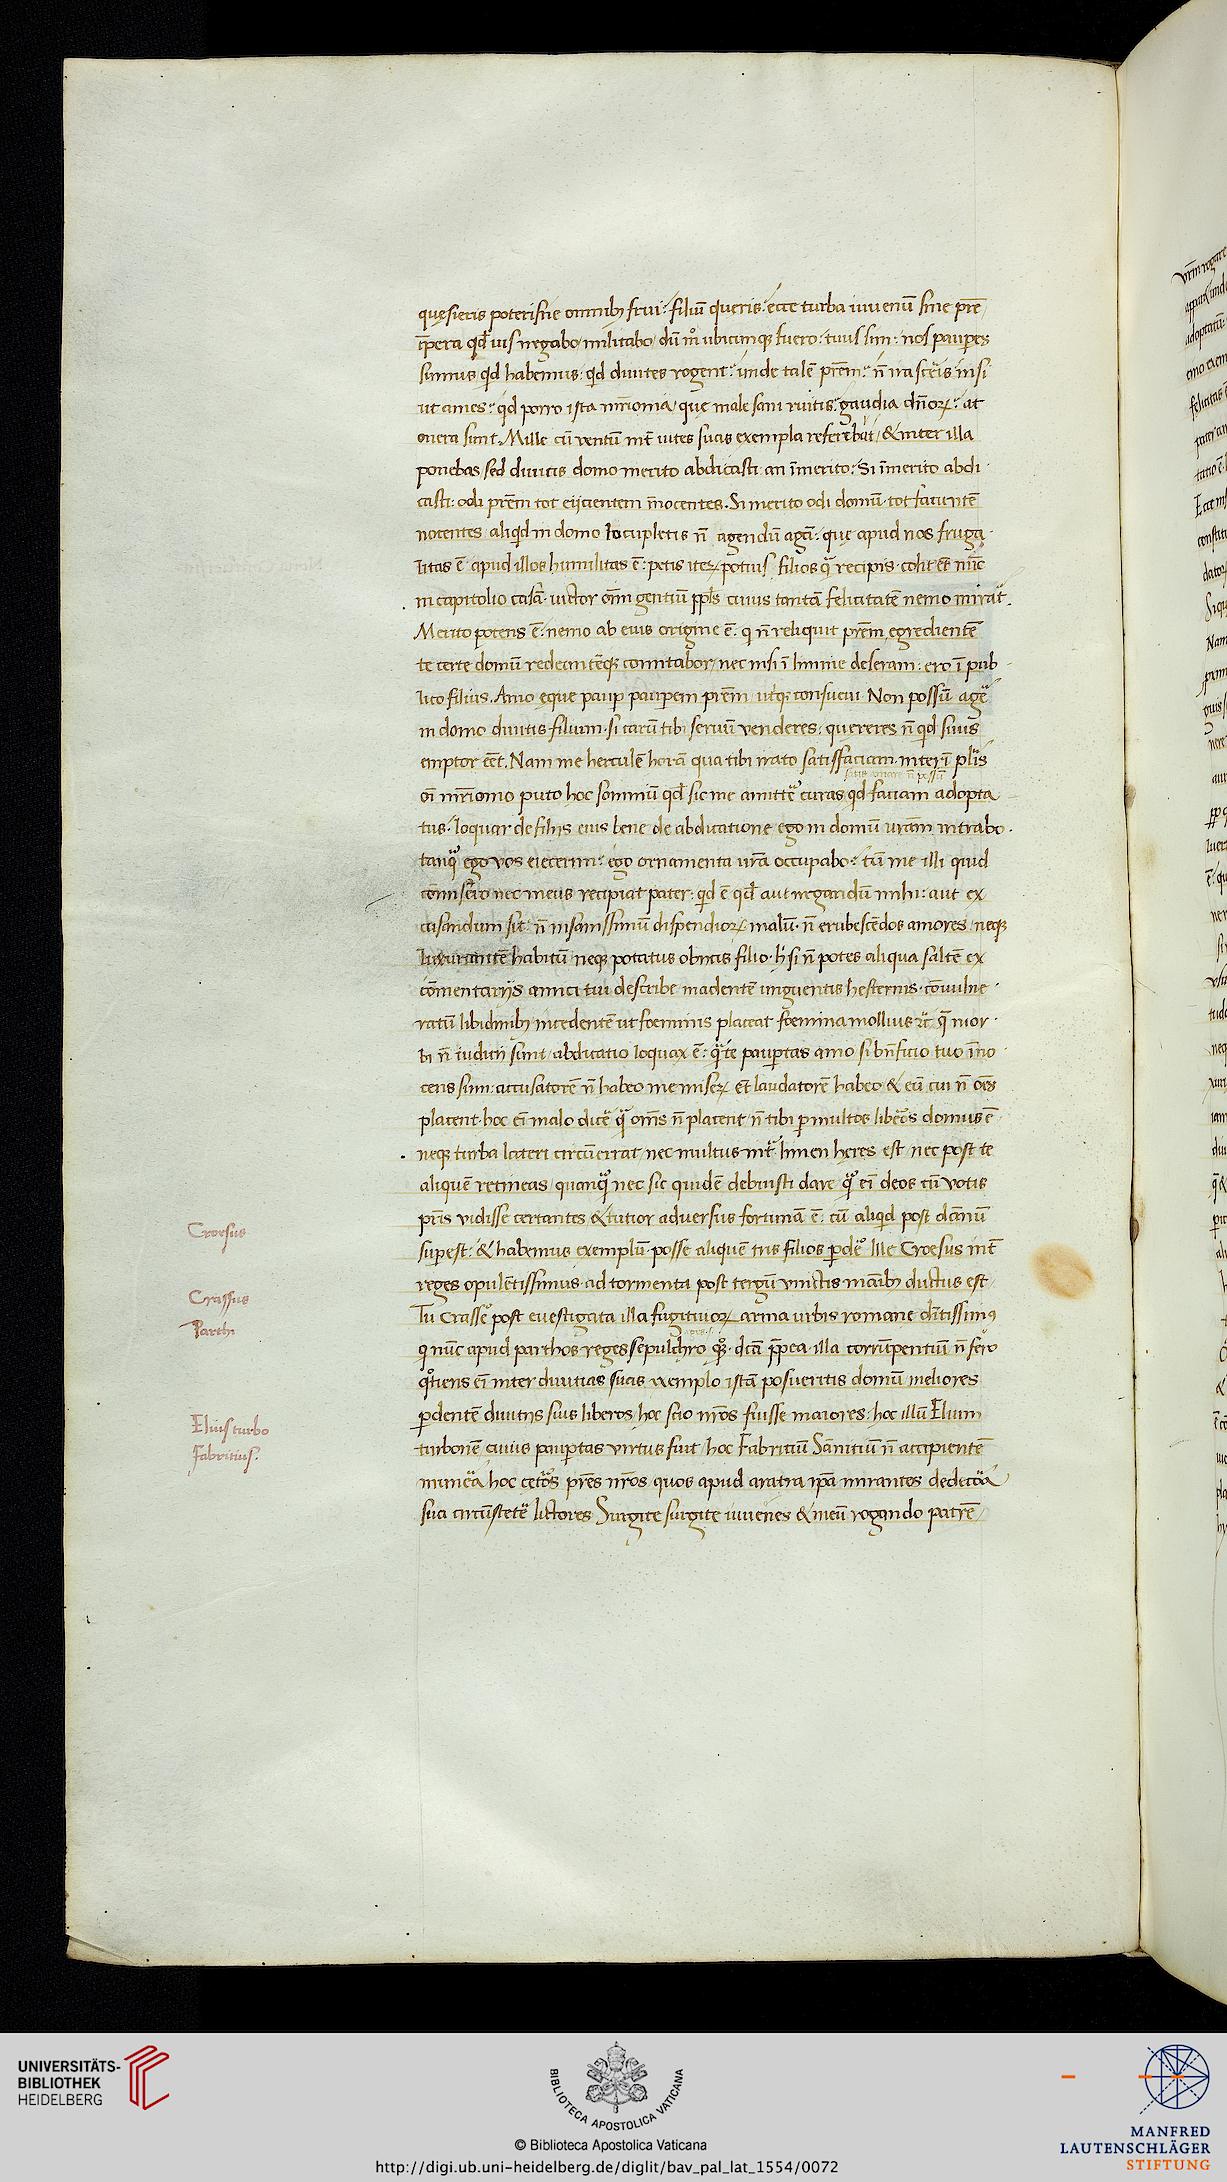 quęsieris poterisne omnibꝫ frui: filiū queris: ecce turba iuuenū sine pr̄e
īpera qđ uis negabo militabo dū m̊ ubicumqꝫ fuero: tuus sim: nos pauꝑes
sumus qd habemus: qd diuites rogent: unde talē pr̄em: n̄ irasceris nisi
ut ames: qd porro ista mr̄ionia que male sani ruitis: gaudia dn̄oꝝ: at
onera sunt. Mille cū ventū int̄ uites suas exempla referebāt & inter illa
ponebas sed diuitis domo merito abdicasti an īmerito: Si īmerito abdi
casti: odi pr̄em tot eijcientem īnocentes. Si merito odi domū tot facientē
nocentes aliqd in domo locupletis n̄ agendū agā: que apud nos fruga
litas ē apud illos humilitas ē: petis iteꝝ potius filios q̄ recipis colit̄
in capitolio casā victor om̄i gentiū ppl̄s cuius tantā felicitatē nemo mirat̄.
Merito potens ē: nemo ab eius origine ē q n̄ reliquit pr̄em egredientē
te certe domū redeuntēqꝫ comitabor nec nisi ī limine deseram: ero ī pub
lico filius. Amo eque pauꝑ pauꝑem pr̄em utqꝫ consueui Non possū age
in domo diuitis filium si carū tibi seruū venderes: quereres n̄ qd siuus
emptor eēt. Nam me herculē horā qua tibi irato satisfaciam inter ī
satis amare n̄ possū
oī mr̄iomo puto hoc somniū qđ sic me amitte curas qd faciam adopta
tus: loquar de filijs eius bene de abdicatione ego in domū uram intrabo
tanq̄ ego vos eiecerim: ego ornamenta ura occupabo: tū me illi quid
nec meus recipiat pater: qd ē qđ aut negandū mihi: aut ex
cusandum sit: n̄ insanissimū dispendioꝝ malū n̄ erubescēdos amores neqꝫ
luxuriantē habitū neqꝫ potatus obijcis filio si n̄ potes aliqua saltē ex
cōmentarijs amici tui describe madentē unguentis hesternis conuulne
ratū libidinibꝫ incedentē ut foeminis placeat foemina mollius & q̄ mor
bi n̄ iudicij sunt abdicatio loquax ē: te pauꝑtas amo si bn̄ficio tuo īno
cens sum: accusatorē n̄ habeo me miseꝝ & laudatorē habeo & eū cui n̄ oēs
placent hoc ei malo dice q̄ om̄s n̄ placent n̄ tibi ꝑ multos domus ē
neqꝫ turba lateri circūerrat nec multus int̄ limen heres est nec post te
aliquē retineas quanq̄ nec sic quidē debuisti dare q̄ ei deos cū votis
pr̄is vidisse certantes & tutior aduersus fortunā ē: cū aliqd post dānū
suꝑest: & habemus exemplū posse aliquē tris filios ꝑde Ille Croesus int̄
reges opulētissimus ad tormenta post tergū vinctis manibꝫ ductus est
Tu Crasse post euestigata illa fugitiuoꝝ arma urbis romane ditissimꝰ
q nūc apud parthos reges sepulchro dcā pꝑea illa corrūpentiū n̄ fero
q̊tiens ei inter diuitias suas exemplo istā posueritis domū meliores
ꝑdentē diuitijs suis liberos hoc scio nr̄os fuisse maiores: hoc illū Elium
turbonē cuius pauꝑtas virtus fuit hoc Fabritiū Sanitiū n̄ accipientē
munera hoc ceteros pr̄es nr̄os quos apud aratra ipa mirantes dedecora
sua circūstete lictores Surgite surgite iuuenes & meū rogando patrē
Croesus
Crassus
Parthi
Elius turbo
Fabritius.
UNIVERSITÄTS-
BIBLIOTHEK
HEIDELBERG
BIBLIOTECA APOSTOLICA VATICANA
© Biblioteca Apostolica Vaticana
http://digi.ub.uni-heidelberg.de/diglit/bav_pal_lat_1554/0072
MANFRED
LAUTENSCHLÄGER
STIFTUNG